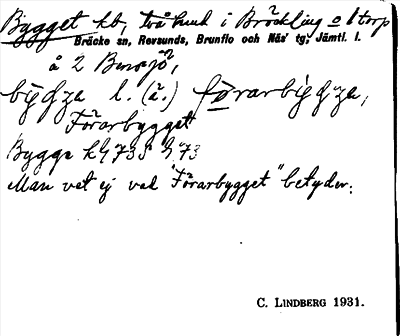 Bygget hb, två hmd i Bräckling o 1 torp
Bräcke sn, Revsunds, Brunflo och Näs' tg, Jämtl. l.
å 2 Bensjö,
byg̀g̀za l. (ä.) förarbyg̀g̀za,
Förarbygget
Bygge kb 735 h 73
Man vet ej vad "Förarbygget" betyder.
C. LINDBERG 1931.